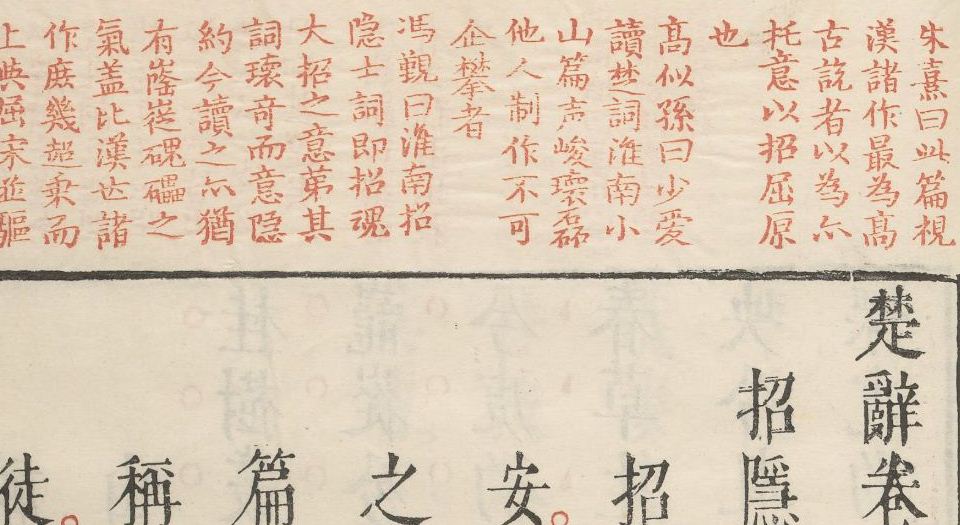 朱熹曰此篇視
漢諸作最為高
古說者以為亦
托意以招屈原
也
高似孫曰少愛
讀楚詞淮南小
山篇声峻瓌磊
他人制作不可
企攀者
馮覲曰淮南招
隐士詞即招魂
大招之意第其
詞瓌奇而意隐
約今讀之亦猶
有嶐嵸磈礧之
氣盖比漢世諸
作庶幾超乗而
上與屈宋並驅
楚辭卷
招隱
招
安
之
篇
稱
徒